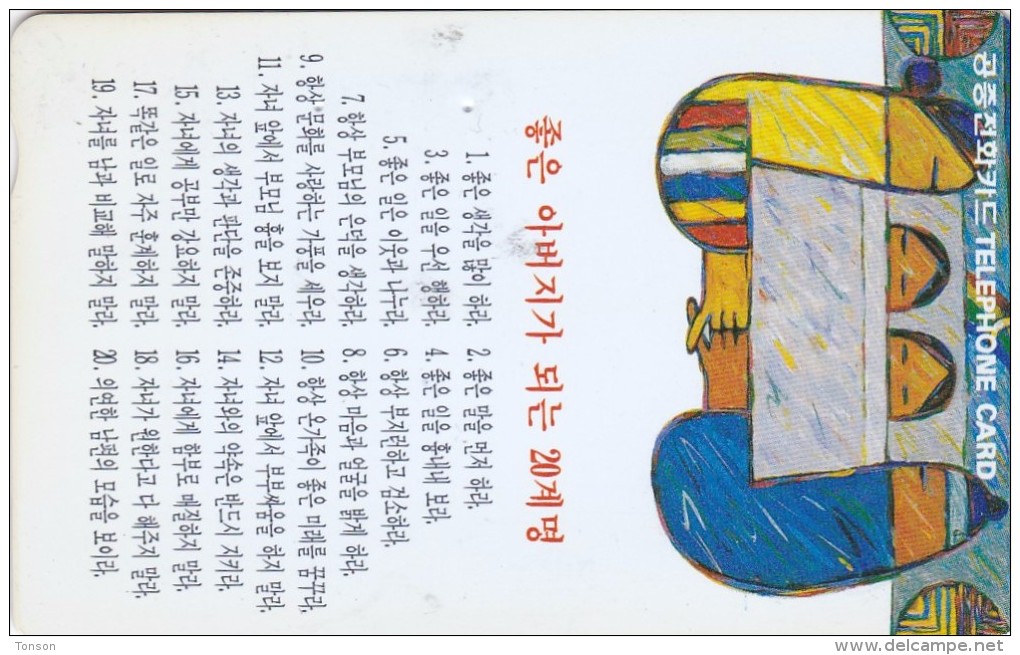 공중전화카드 TELEPHONE CARD
좋은 아버지가 되는 20계명
1. 좋은 생각을 많이 하라.
2. 좋은 말을 먼저 하라.
3. 좋은 일을 우선 행하라.
4. 좋은 일을 흉내내 보라.
5. 좋은 일은 이웃과 나누라.
6. 항상 부지런하고 검소하라.
7. 항상 부모님의 은덕을 생각하라.
8. 항상 마음과 얼굴을 밝게 하라.
9. 항상 문화를 사랑하는 가풍을 세우라.
10. 항상 온가족이 좋은 미래를 꿈꾸라.
11. 자녀 앞에서 부모님 흉을 보지 말라.
12. 자녀 앞에서 부부싸움을 하지 말라.
13. 자녀의 생각과 판단을 존중하라.
14. 자녀와의 약속은 반드시 지키라.
15. 자녀에게 공부만 강요하지 말라.
16. 자녀에게 함부로 매질하지 말라.
17. 똑같은 일로 자주 훈계하지 말라.
18. 자녀가 원한다고 다 해주지 말라.
19. 자녀를 남과 비교해 말하지 말라.
20. 의연한 남편의 모습을 보이라.
Tonson
www.delcampe.net